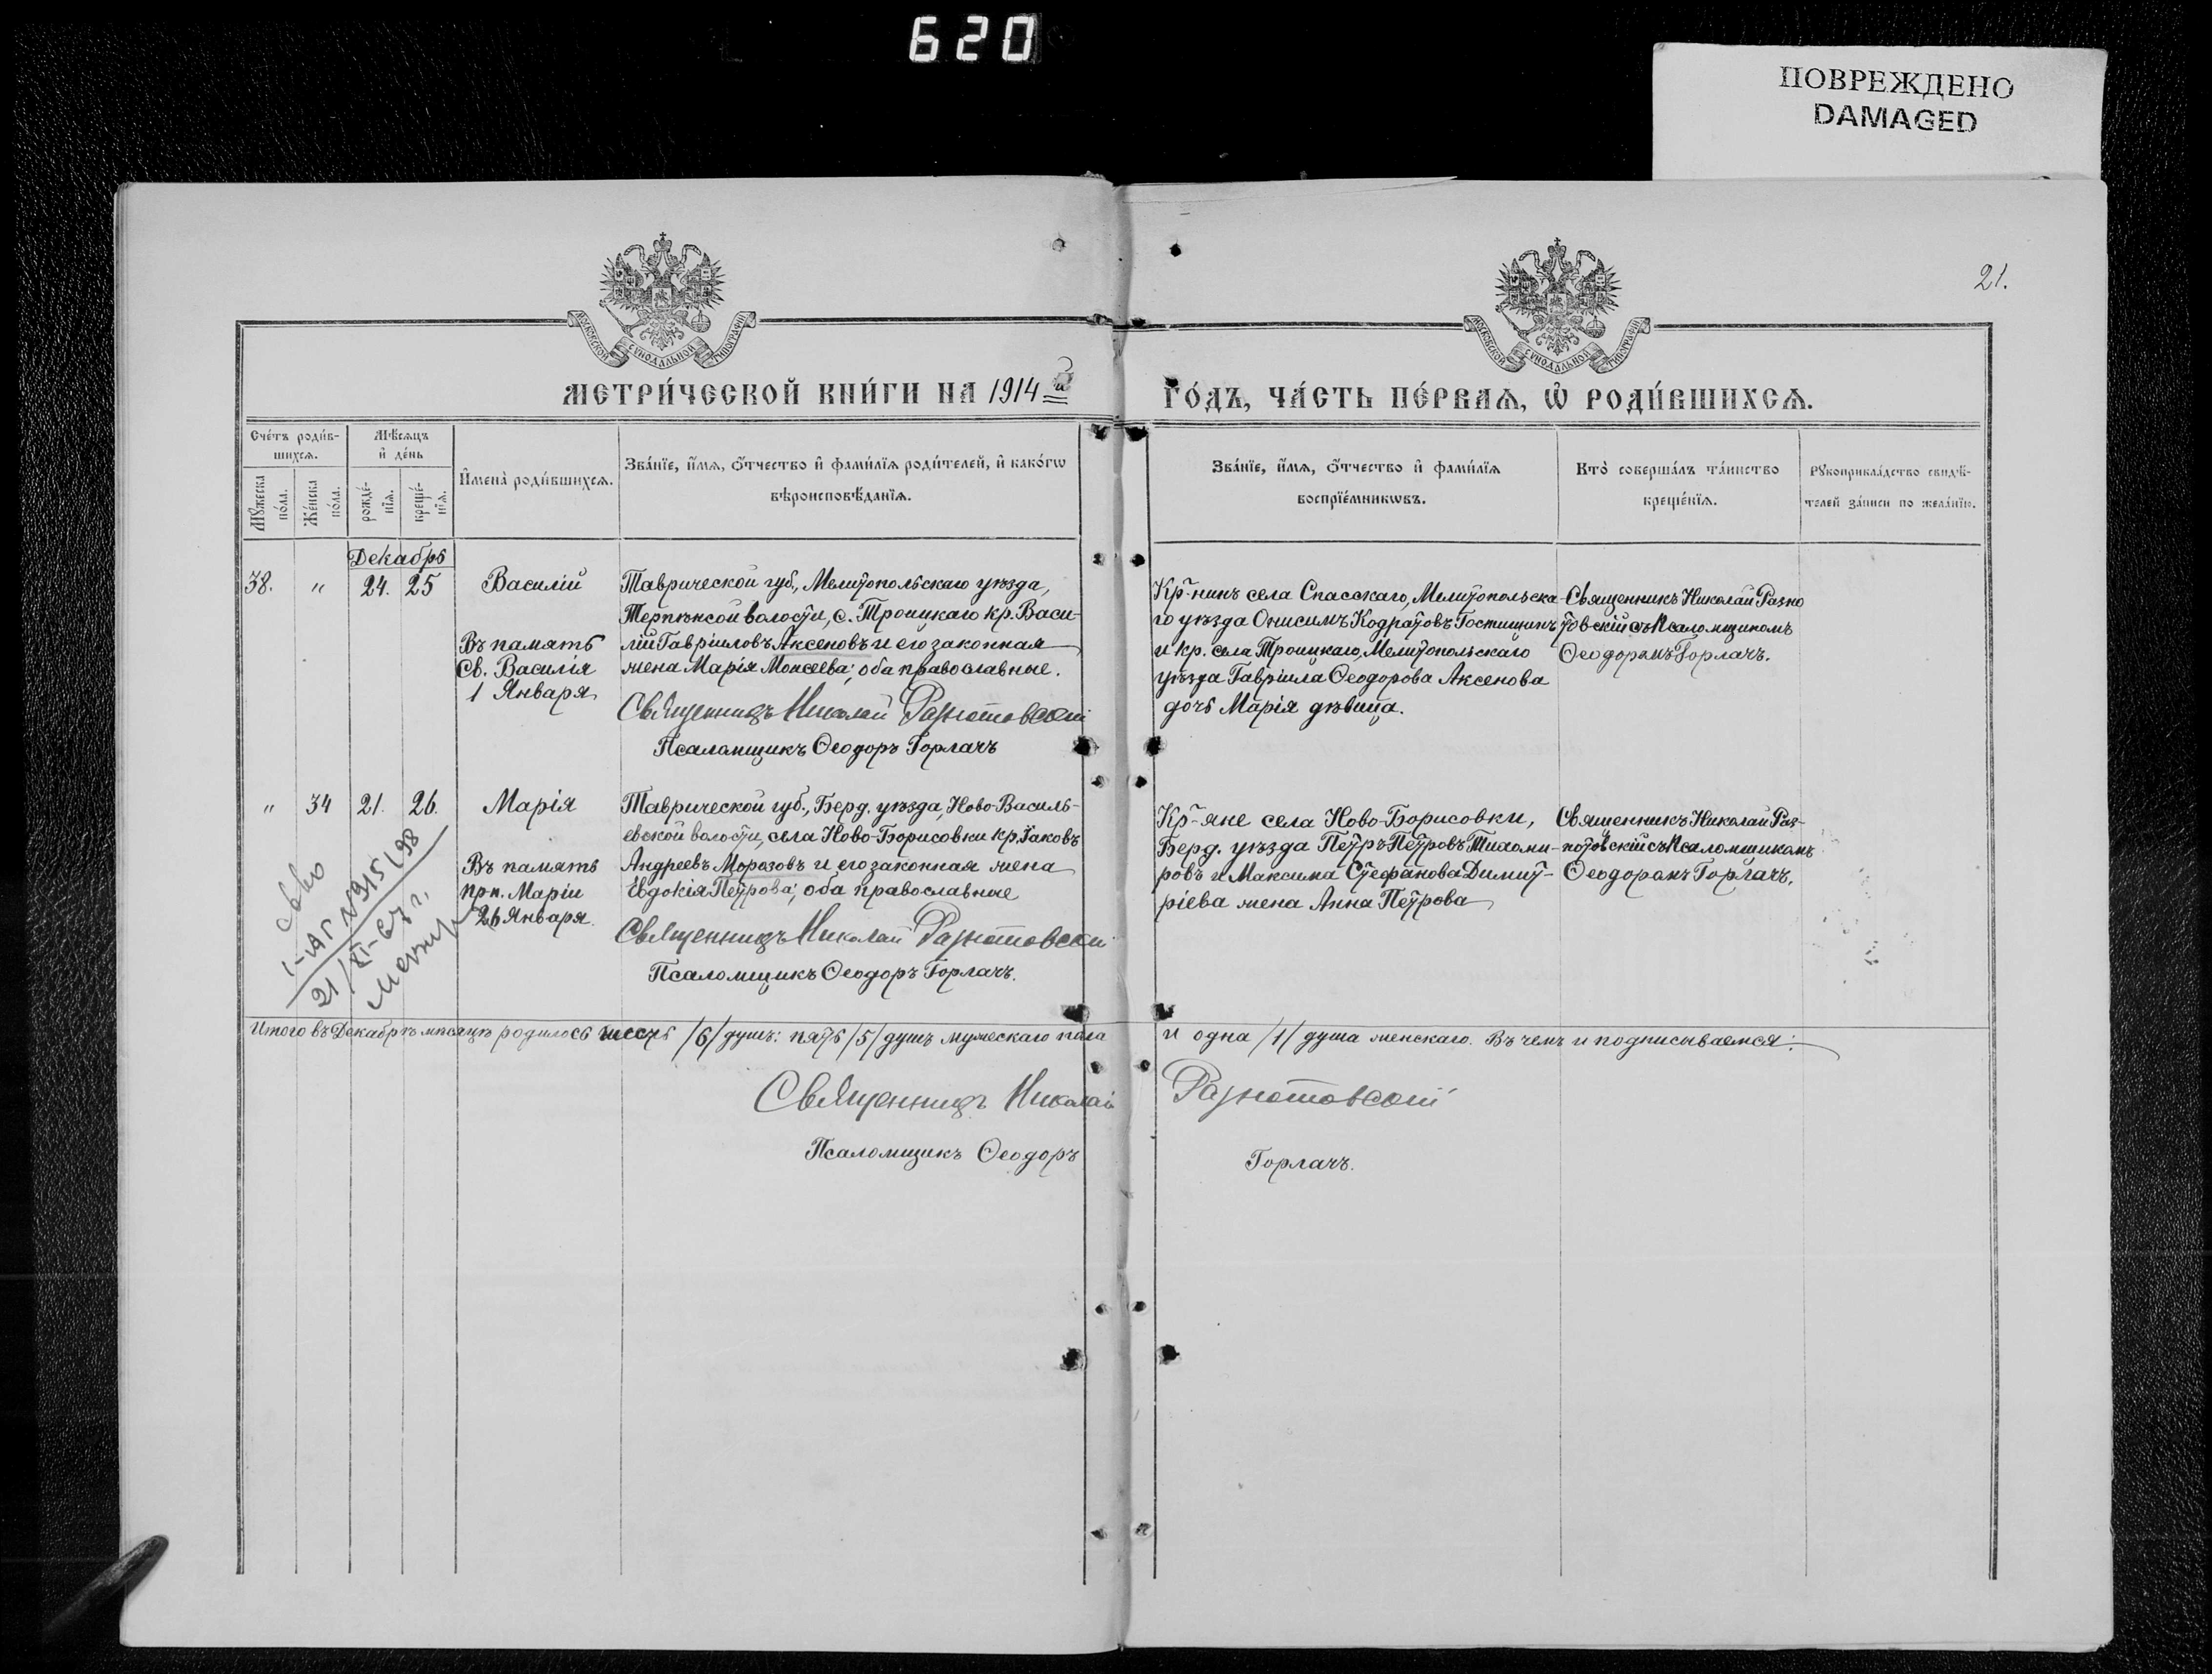 620
ПОВРЕЖДЕНО
DAMAGED
21.
МОСКОВСКОЙ СѴНОДАЛЬНОЙ ТИПОГРАФІИ
МОСКОВСКОЙ СѴНОДАЛЬНОЙ ТИПОГРАФІИ
МЕТРИ́ЧЕСКОЙ КНИ́ГИ НА 1914 й
ГО́ДЪ, ЧА́СТЬ ПЕ́РВАѦ, Ѡ҆ РОДИ́ВШИХСѦ.
Сче́тъ роди́в-
шихсѧ.
Мѣ́сѧцъ
и҆ де́нь
Мꙋ́жеска
по́ла.
Же́нска
по́ла.
рожде́-
нїѧ.
креще́-
нїѧ.
И҆мена̀ роди́вшихсѧ.
Зва́нїе, и҆́мѧ, ѻ҆́тчество и҆ фами́лїѧ роди́телей, и҆ како́гѡ
вѣроисповѣ́данїѧ.
Зва́нїе, и҆́мѧ, ѻ҆́тчество и҆ фами́лїѧ
воспрїе́мникѡвъ.
Кто̀ соверша́лъ та́инство
креще́нїѧ.
Рꙋкоприкла́дство свидѣ́-
телей за́писи по жела́нїю.
Декабрь
38. " 24. 25 Василій
Въ память
Св. Василія
1 Января
Таврической губ., Мелитопольскаго уѣзда,
Терпѣнсой волости, с. Троицкаго кр. Васи-
лій Гавріиловъ Аксеновъ и его законная
жена Марія Моисеева; оба православные.
Священникъ Николай Разнотовскій
Псаломщикъ Ѳеодоръ Горлачъ
Кр-нинъ села Спасскаго, Мелитопольска-
го уѣзда Онисимъ Кодратовъ Гостищинъ
и кр. села Троицкаго, Мелитопольскаго
уѣзда Гавріила Ѳеодорова Аксенова
дочь Марія дѣвица.
Священникъ Николай Разно
товскій съ Псаломщикомъ
Ѳеодоромъ Горлачъ.
" 34 21. 26. Марія
Въ память
прп. Маріи
26 Января.
Таврической губ., Берд. уѣзда, Ново-Василь-
евской волости, села Ново-Борисовки кр. Іаковъ
Андреевъ Морозовъ и его законная жена
Евдокія Петрова; оба православные
Священникъ Николай Разнотовскій
Псаломщикъ Ѳеодоръ Горлачъ.
Кр-яне села Ново-Борисовки,
Берд. уѣзда Петръ Петровъ Тихоми-
ровъ и Максима Стефанова Димит-
ріева жена Анна Петрова
Священникъ Николай Раз-
нотовскій съ Псаломщикомъ
Ѳеодоромъ Горлачъ.
I-АГ № 315198
21/XI-67 г.
Итого въ Декабрѣ мѣсяцѣ родилось шесть /6/ душъ: пять /5/ душъ мужескаго пола и одна /1/ душа женскаго. Въ чемъ и подписываемся:
Священникъ Николай Разнотовскій
Псаломщикъ Ѳеодоръ Горлачъ.